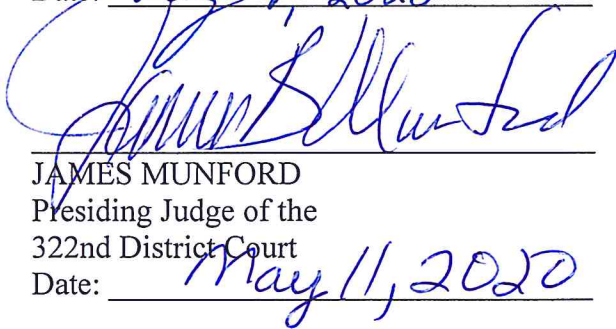 2020
James B Munford
JAMES MUNFORD
Presiding Judge of the
322nd District Court
Date: May 11, 2020